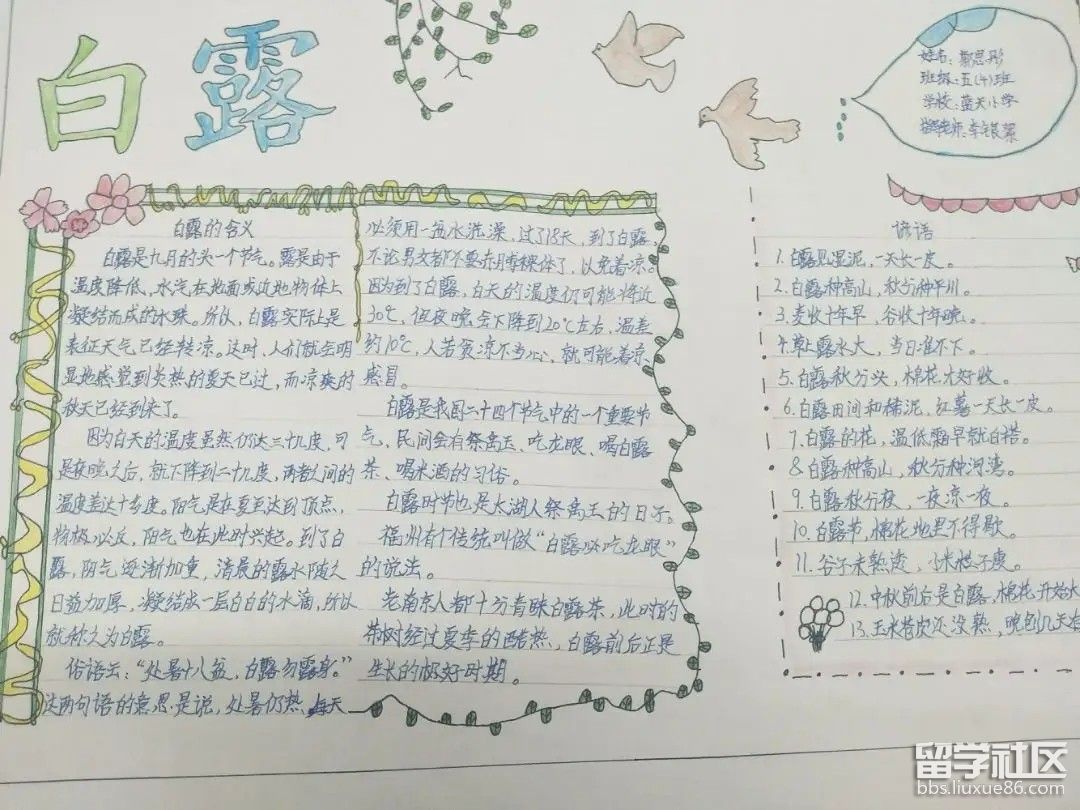 白露
姓名：
班级：五(4)班
学校：蓝天小学
指导老师：李银
白露的含义
白露是九月的头一个节气。露是由于
温度降低，水汽在地面或近地物体上
凝结而成的水珠。所以，白露实际上是
表征天气已经转凉。这时，人们就会明
显地感觉到炎热的夏天已过，而凉爽的
秋天已经到来了。
因为白天的温度虽然仍达三十几度，可
是夜晚之后，就下降到二十几度，两者之间的
温度差达十多度。阳气是在夏至达到顶点，
物极必反，阴气也在此时兴起。到了白
露，阴气逐渐加重，清晨的露水随之
日益加厚，凝结成一层白白的水滴，所以
就称之为白露。
俗语云：“处暑十八盆，白露勿露身。”
这两句话的意思是说，处暑仍热，每天
必须用一盆水洗澡，过了18天，到了白露，
不论男女都不要赤裸体了，以免着凉。
因为到了白露，白天的温度仍可能将近
30℃，但夜晚会下降到20℃左右，温差
约10℃，人若贪凉不当心，就可能着凉、
感冒。
白露是我国二十四个节气中的一个重要节
气，民间会有祭禹王、吃龙眼、喝白露
茶、喝米酒的习俗。
白露时节也是太湖人祭禹王的日子。
福州有个传统叫做“白露必吃龙眼”
的说法。
老南京人都十分青睐白露茶，此时的
茶树经过夏季的酷热，白露前后正是
生长的极好时期。
谚语
1.白露见湿泥，一天长一皮。
2.白露种高山，秋分种平川。
3.麦收十年早，谷收十年晚。
4.草上露水大，当日准不下。
5.白露秋分头，棉花才好收。
6.白露田间和稀泥，红薯一天长一皮。
7.白露的花，温低霜早就白搭。
8.白露种高山，秋分种河湾。
9.白露秋分夜，一夜凉一夜。
10.白露节，棉花地里不得歇。
11.谷子未熟透，
12.中秋前后是白露，棉花开始
13.玉米苞皮还没熟，晚刨几天
留学社区
bbs.liuxue86.com